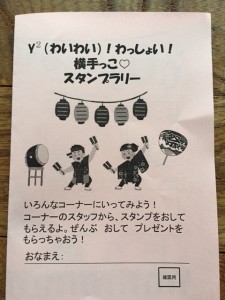 Y²(わいわい)!わっしょい!
横手っこ♡
スタンプラリー
いろんなコーナーにいってみよう!
コーナーのスタッフから、スタンプをおして
もらえるよ。ぜんぶ おして プレゼントを
もらっちゃおう!
おなまえ: